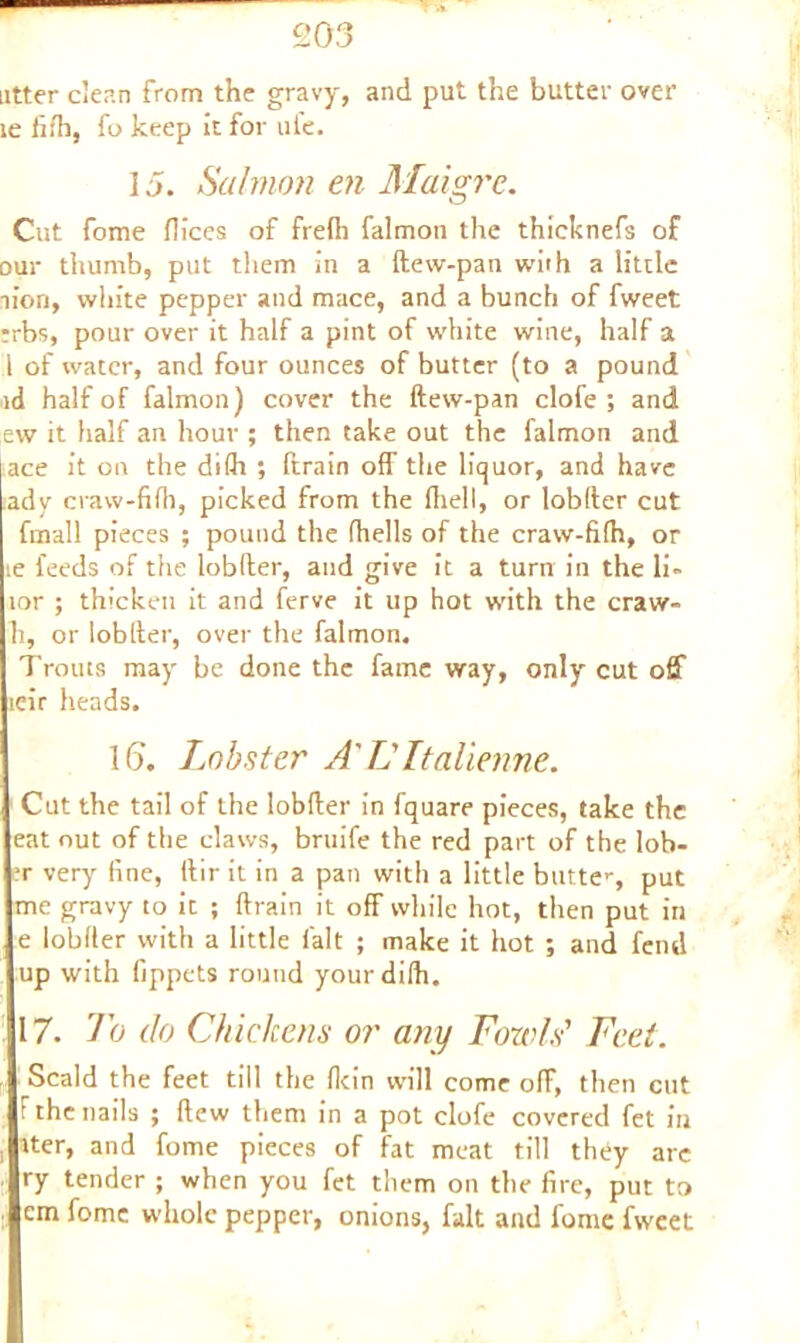 203
utter clean from the gravy, and put the butter over
ie fiſh, ſo keep it for uſe.
15. Salmon en Maigre.
Cut ſome ſlices of freſh ſalmon the thickneſs of
our thumb, put them in a ſtew-pan with a little
nion, white pepper and mace, and a bunch of ſweet
erbs, pour over it half a pint of white wine, half a
l of water, and four ounces of butter (to a pound
nd half of ſalmon) cover the ſtew-pan cloſe ; and
ew it half an hour ; then take out the ſalmon and
ace it on the diſh ; ſtrain off the liquor, and have
ady craw-fiſh, picked from the ſhell, or lobſter cut
ſmall pieces ; pound the ſhells of the craw-fiſh, or
e ſeeds of the lobſter, and give it a turn in the li-
uor ; thicken it and ſerve it up hot with the craw-
h, or lobſter, over the ſalmon.
Trouts may be done the ſame way, only cut off
eir heads.
16. Lobster A'L'Italienne.
Cut the tail of the lobſter in ſquare pieces, take the
eat out of the claws, bruiſe the red part of the lob-
er very fine, ſtir it in a pan with a little butter, put
me gravy to it ; ſtrain it off while hot, then put in
e lobſter with a little ſalt ; make it hot ; and ſend
up with ſippets round your diſh.
17. To do Chickens or any Fowls' Feet.
Scald the feet till the ſkin will come off, then cut
f the nails ; ſtew them in a pot cloſe covered ſet in
ter, and ſome pieces of fat meat till they are
ry tender ; when you ſet them on the fire, put to
em ſome whole pepper, onions, ſalt and ſome ſweet